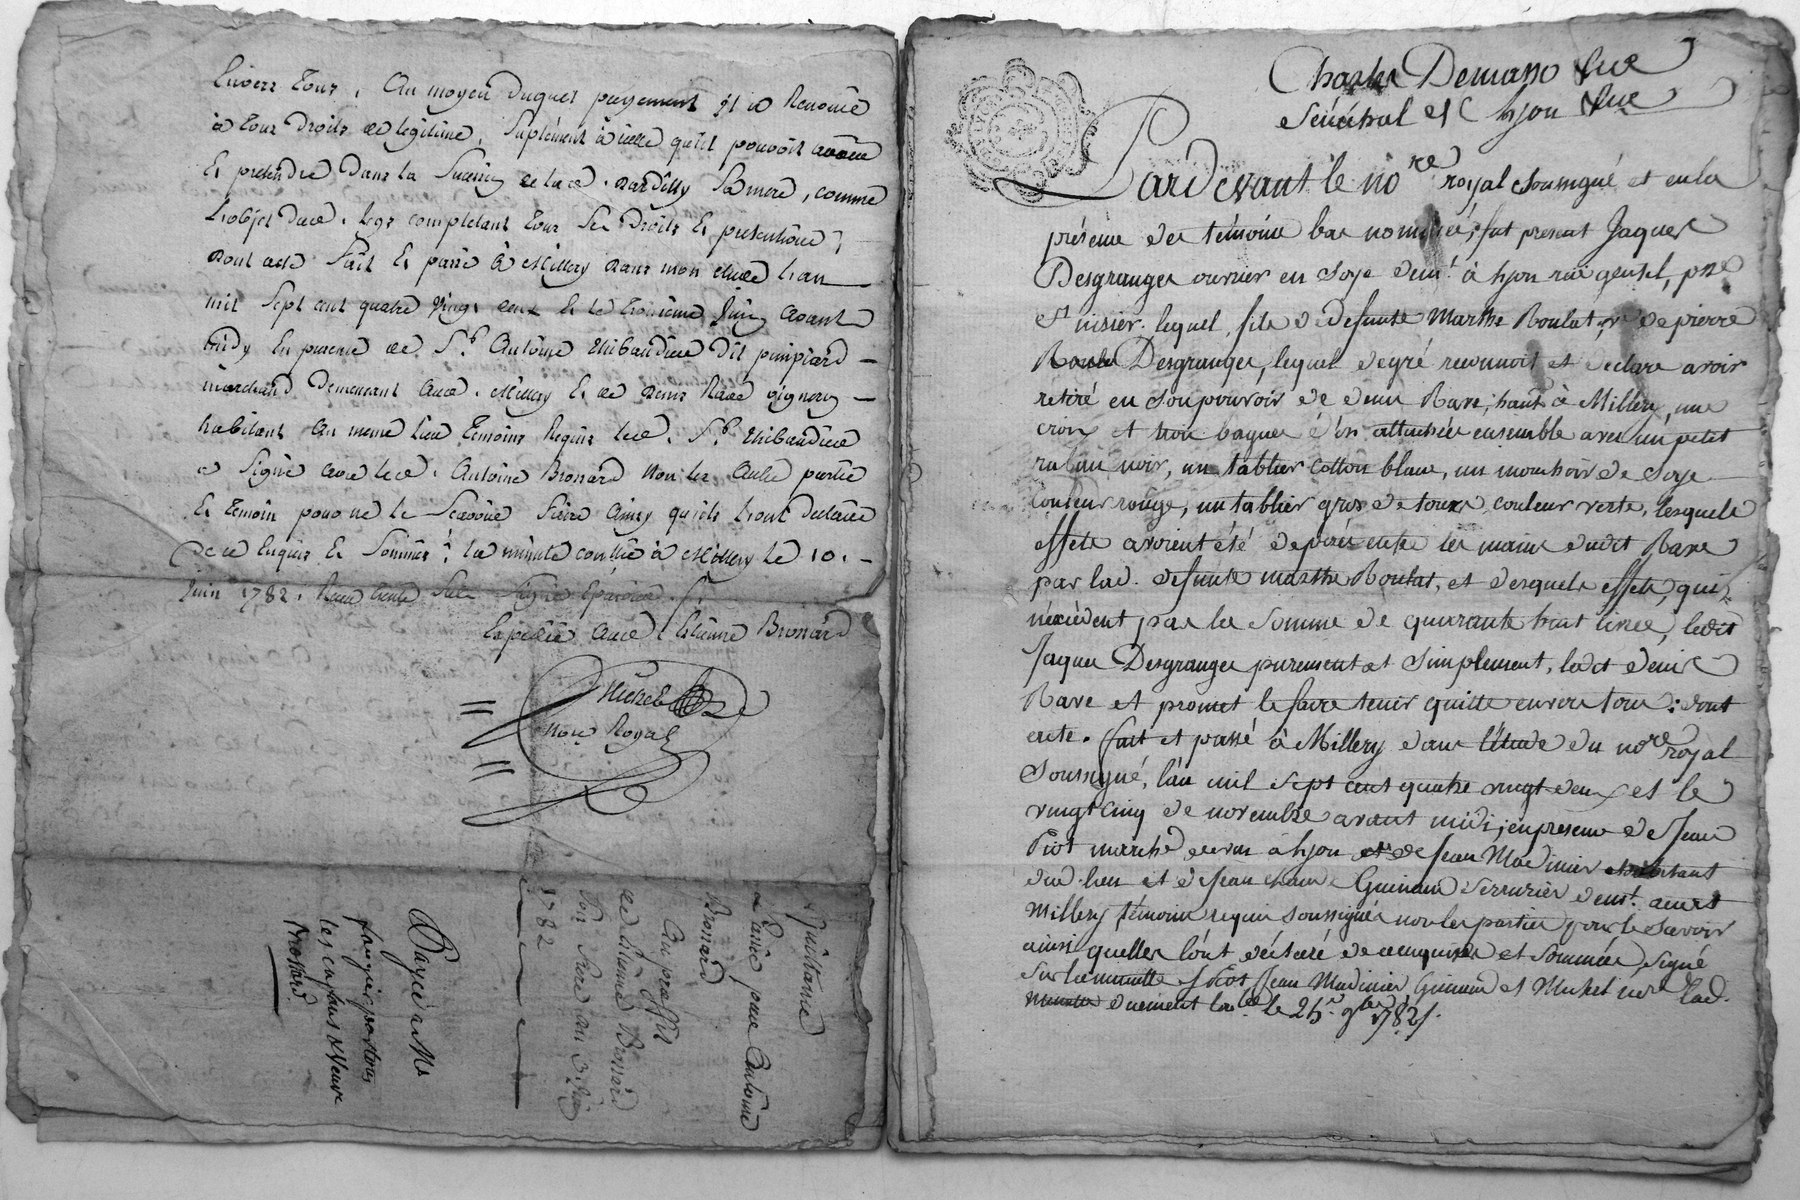 Envers tous, au moyen duquel payement il a Renoncé
a tous droits de legitime, suplement d'icelle qu'il pouvoit avoir
Et pretendre dans la succession de lad. sa mere, comme
L'objet dud. legs completant tous ses droits Et pretentions,
dont acte fait Et passé à Millery dans mon etude L'an
mil sept cent quatre vingt deux Et le troisieme Juin avant
midy En presence de Sr. Antoine Thibaudier dit
marchand demeurant aud. Millery Et de denis Rave vigneron
habitant au meme lieu Temoins Requis led. Sr. Thibaudier
a signé avec led. Antoine Brossard non les autres parties
Et Temoin pour ne le sçavoir faire ainsy qu'ils L'ont declaré
de ce Enquis Et Sommés, la minute conllée à Millery le 10.
Juin 1782.
Expediée aud. Etienne Brossard
Michel
Nore Royal
Quittance
Passée par Antoine
Brossard
Au proffit
de Etienne Brossard
son frere du 3 Juin
1782
Payée a Me
les enfans & veuve
Brossard
Sénéchal et Lyon
Pardevant le nore royal soussigné et en la
présence des témoins bas nommés, fut present Jaques
Desgranges ouvrier en soye demt. à Lyon
St nisier. lequel, fils de defunte Marthe Roulat, de pierre
Desgranges, lequel degré reconnoit et declare avoir
retiré en son pouvoir de denis Rave, habt à Millery, une
croix et trois bagues d'or attachés ensemble avec un petit
ruban noir, un tablier cotton blanc, un mouchoir de soye
couleur rouge, un tablier gros de tours couleur verte, lesquels
effets avoient été deposés entre les mains dudit Rave
par lad. defunte marthe Roulat, et desquels effets, qui
n'excèdent pas la somme de quarante huit livres, ledit
Jaques Desgranges purement et simplement, ledit denis
Rave et promet le faire tenir quitte envers tous: dont
acte. fait et passé à Millery dans l'étude du nore royal
soussigné, l'an mil sept cent quatre vingt deux et le
vingt cinq de novembre avant midi, en presence de Jean
Piot marchd demt à Lyon et de Jean Madinier habitant
dud. lieu et de Jean Guinand serrurier demt. audt
Millery témoins requis soussignés non les parties pour le savoir
ainsi quelles l'ont déclaré de ce enquises et sommées, signé
sur la minutte Piot Jean Madinier Guinand et Michel nore lad.
minutte duement le 25. 9bre 1782.